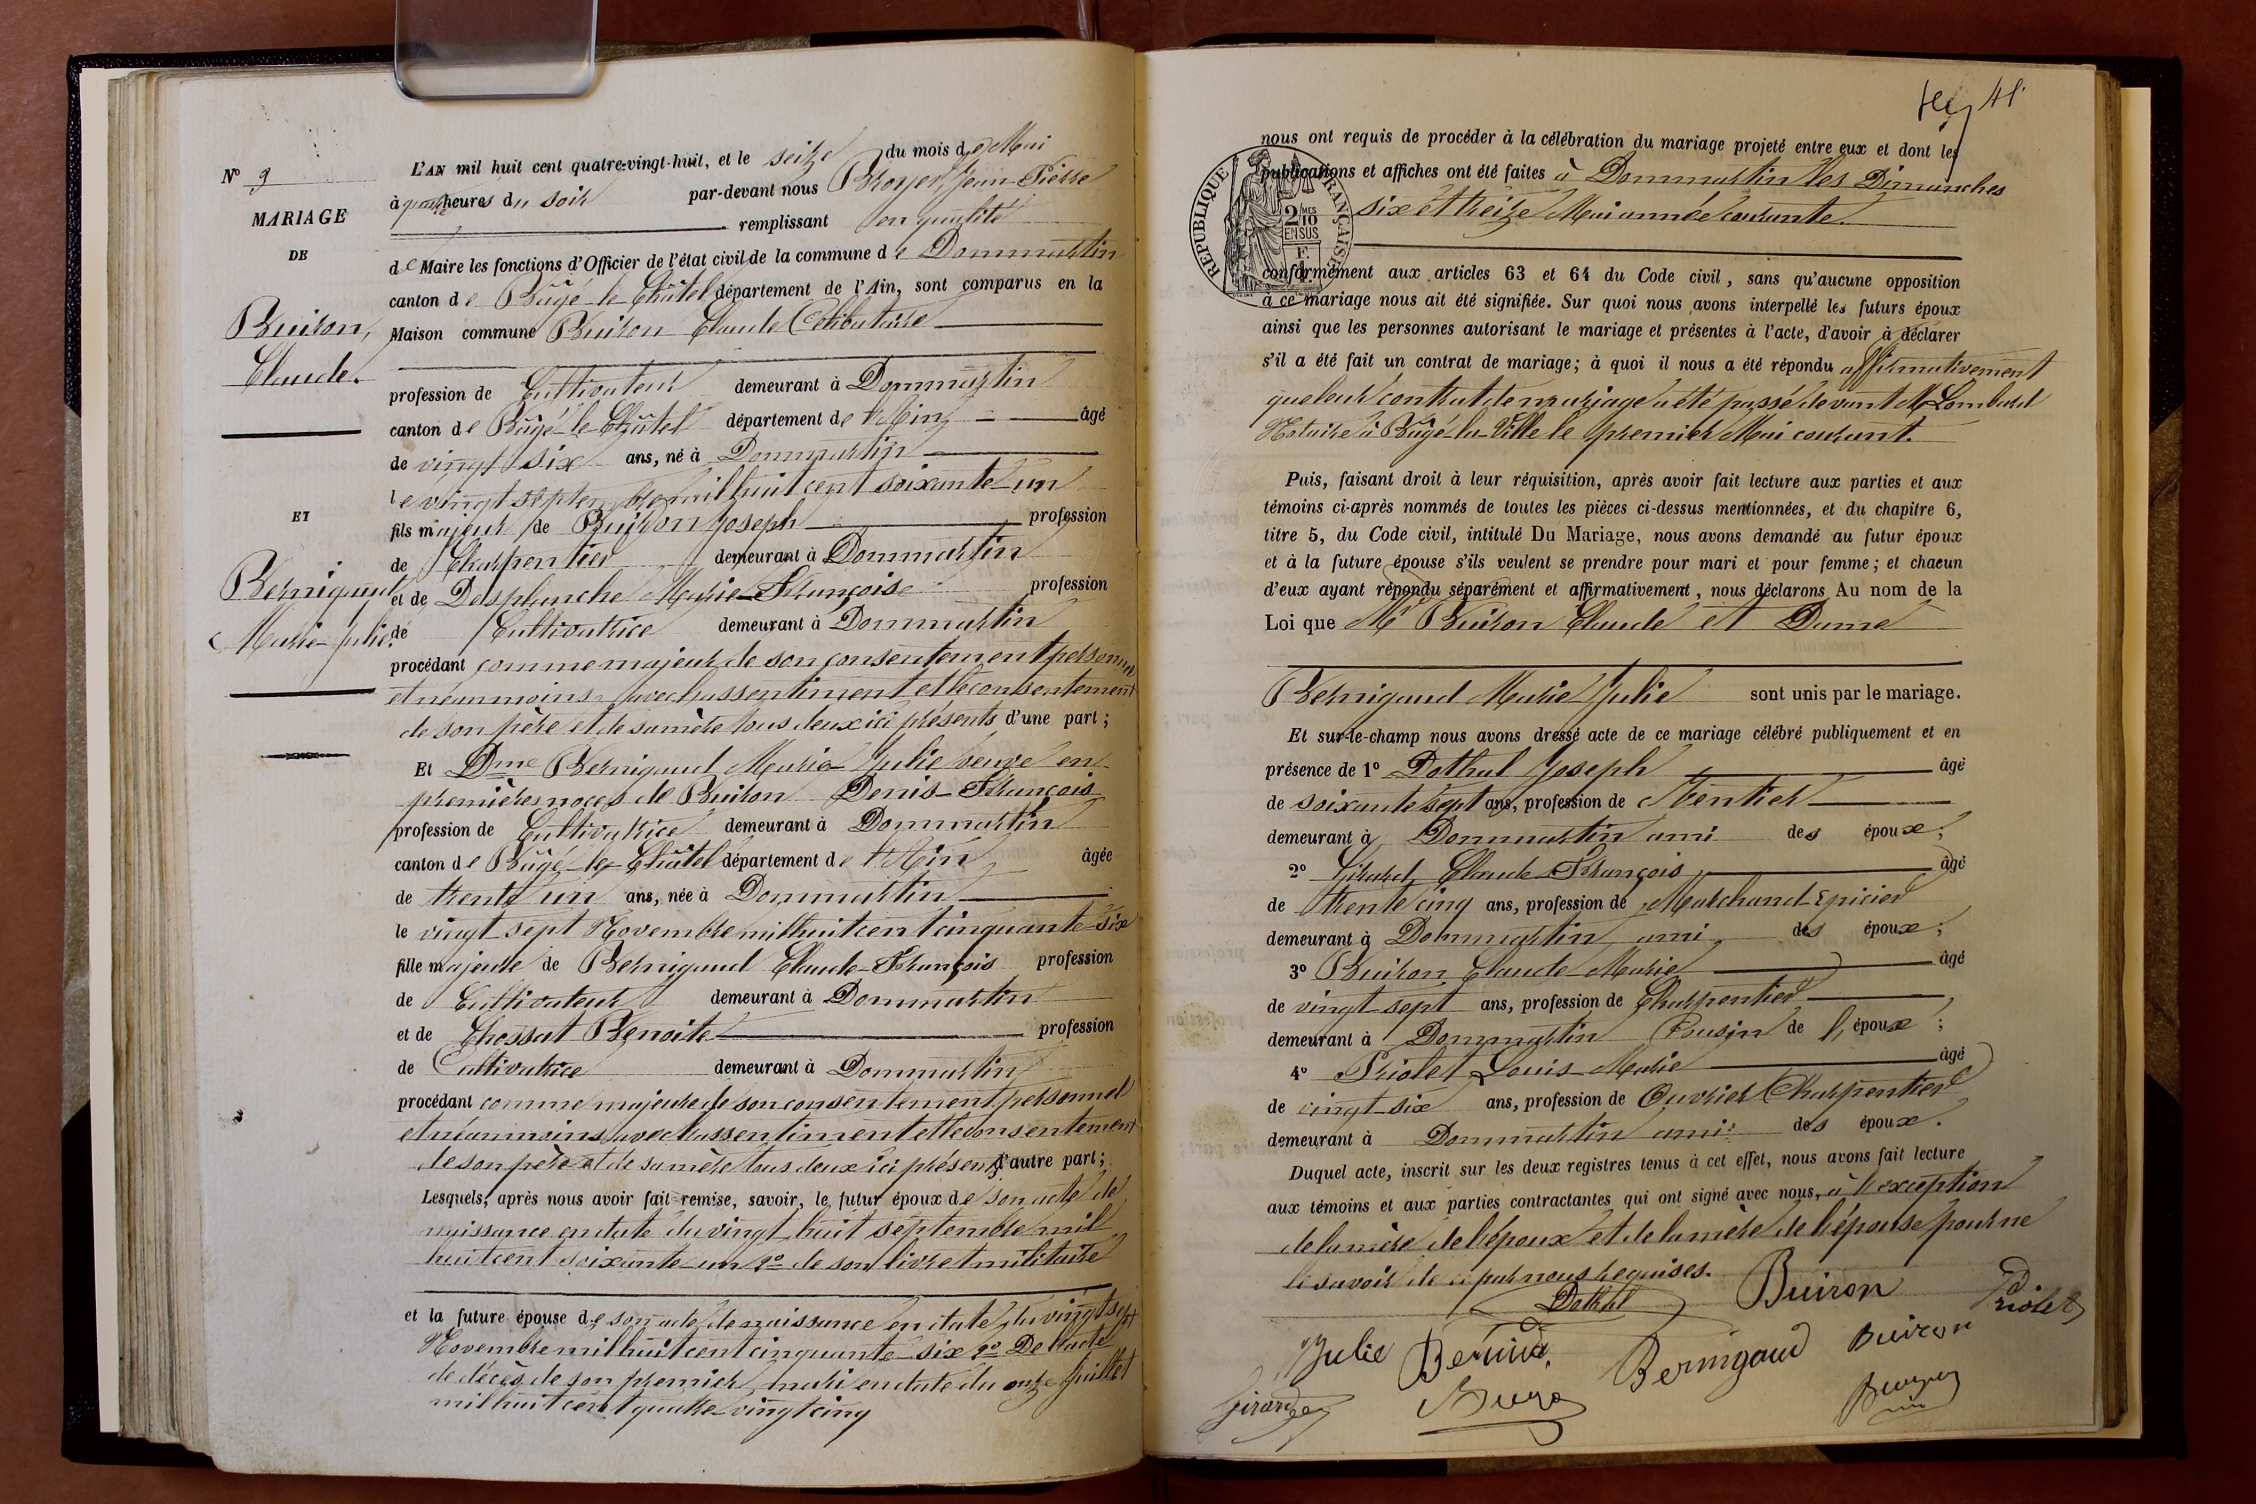 Nº 9
MARIAGE
DE
Buiron,
Claude.
ET
Bernigaud
Marie-Julie.
L'AN mil huit cent quatre-vingt-huit, et le seize du mois de Mai
à quatre heures du soir par-devant nous Broyer, Jean-Pierre
remplissant en qualité
de Maire les fonctions d'Officier de l'état civil de la commune de Dommartin
canton de Bâgé-le-Châtel département de l'Ain, sont comparus en la
Maison commune Buiron Claude Célibataire
profession de Cultivateur demeurant à Dommartin
canton de Bâgé-le-Châtel département de l'Ain âgé
de vingt six ans, né à Dommartin
le vingt septembre mil huit cent soixante-un
fils majeur de Buiron Joseph profession
de Charpentier demeurant à Dommartin
et de Desplanche Marie-Françoise profession
de Cultivatrice demeurant à Dommartin
procédant comme majeur de son consentement personnel
et néanmoins avec l'assentiment et le consentement
de son père et de sa mère tous deux ici présents d'une part ;
Et Dme Bernigaud Marie-Julie veuve en
premières noces de Buiron Denis-François
profession de Cultivatrice demeurant à Dommartin
canton de Bâgé-le-Châtel département de l'Ain âgée
de trente un ans, née à Dommartin
le vingt-sept Novembre mil huit cent cinquante-six
fille majeure de Bernigaud Claude-François profession
de Cultivateur demeurant à Dommartin
et de Chossat Benoite profession
de Cultivatrice demeurant à Dommartin
procédant comme majeure de son consentement personnel
et néanmoins avec l'assentiment et le consentement
de son père et de sa mère tous deux ici présents d'autre part ;
Lesquels, après nous avoir fait remise, savoir, le futur époux de son acte de
naissance en date du vingt-huit septembre mil
huit cent soixante-un 2º de son livret militaire
et la future épouse de son acte de naissance en date du vingt sept
Novembre mil huit cent cinquante-six 2º De l'acte
de décès de son premier mari en date du onze Juillet
mil huit cent quatre-vingt cinq
41
nous ont requis de procéder à la célébration du mariage projeté entre eux et dont les
publications et affiches ont été faites à Dommartin les Dimanches
six et treize Mai année courante.
RÉPUBLIQUE FRANÇAISE
2 MES
10
EN SUS
conformément aux articles 63 et 64 du Code civil, sans qu'aucune opposition
à ce mariage nous ait été signifiée. Sur quoi nous avons interpellé les futurs époux
ainsi que les personnes autorisant le mariage et présentes à l'acte, d'avoir à déclarer
s'il a été fait un contrat de mariage ; à quoi il nous a été répondu affirmativement
que leur contrat de mariage a été passé devant Me Lombard
Notaire à Bâgé-la-Ville le premier Mai courant.
Puis, faisant droit à leur réquisition, après avoir fait lecture aux parties et aux
témoins ci-après nommés de toutes les pièces ci-dessus mentionnées, et du chapitre 6,
titre 5, du Code civil, intitulé Du Mariage, nous avons demandé au futur époux
et à la future épouse s'ils veulent se prendre pour mari et pour femme ; et chacun
d'eux ayant répondu séparément et affirmativement, nous déclarons Au nom de la
Loi que Mr Buiron Claude et Dame
Bernigaud Marie-Julie sont unis par le mariage.
Et sur-le-champ nous avons dressé acte de ce mariage célébré publiquement et en
présence de 1º Dothal Joseph âgé
de soixante sept ans, profession de Rentier
demeurant à Dommartin ami des époux ;
2º Girard Claude-François âgé
de trente cinq ans, profession de Marchand-Epicier
demeurant à Dommartin ami des époux ;
3º Buiron Claude-Marie âgé
de vingt-sept ans, profession de Charpentier
demeurant à Dommartin Cousin de l'époux ;
4º Priolet Louis-Marie âgé
de vingt-six ans, profession de Ouvrier Charpentier
demeurant à Dommartin ami des époux.
Duquel acte, inscrit sur les deux registres tenus à cet effet, nous avons fait lecture
aux témoins et aux parties contractantes qui ont signé avec nous, à l'exception
de la mère de l'époux et de la mère de l'épouse pour ne
le savoir de ce par nous requises.
Dothal Buiron Priolet
Julie Bernigaud Buiron
Girard